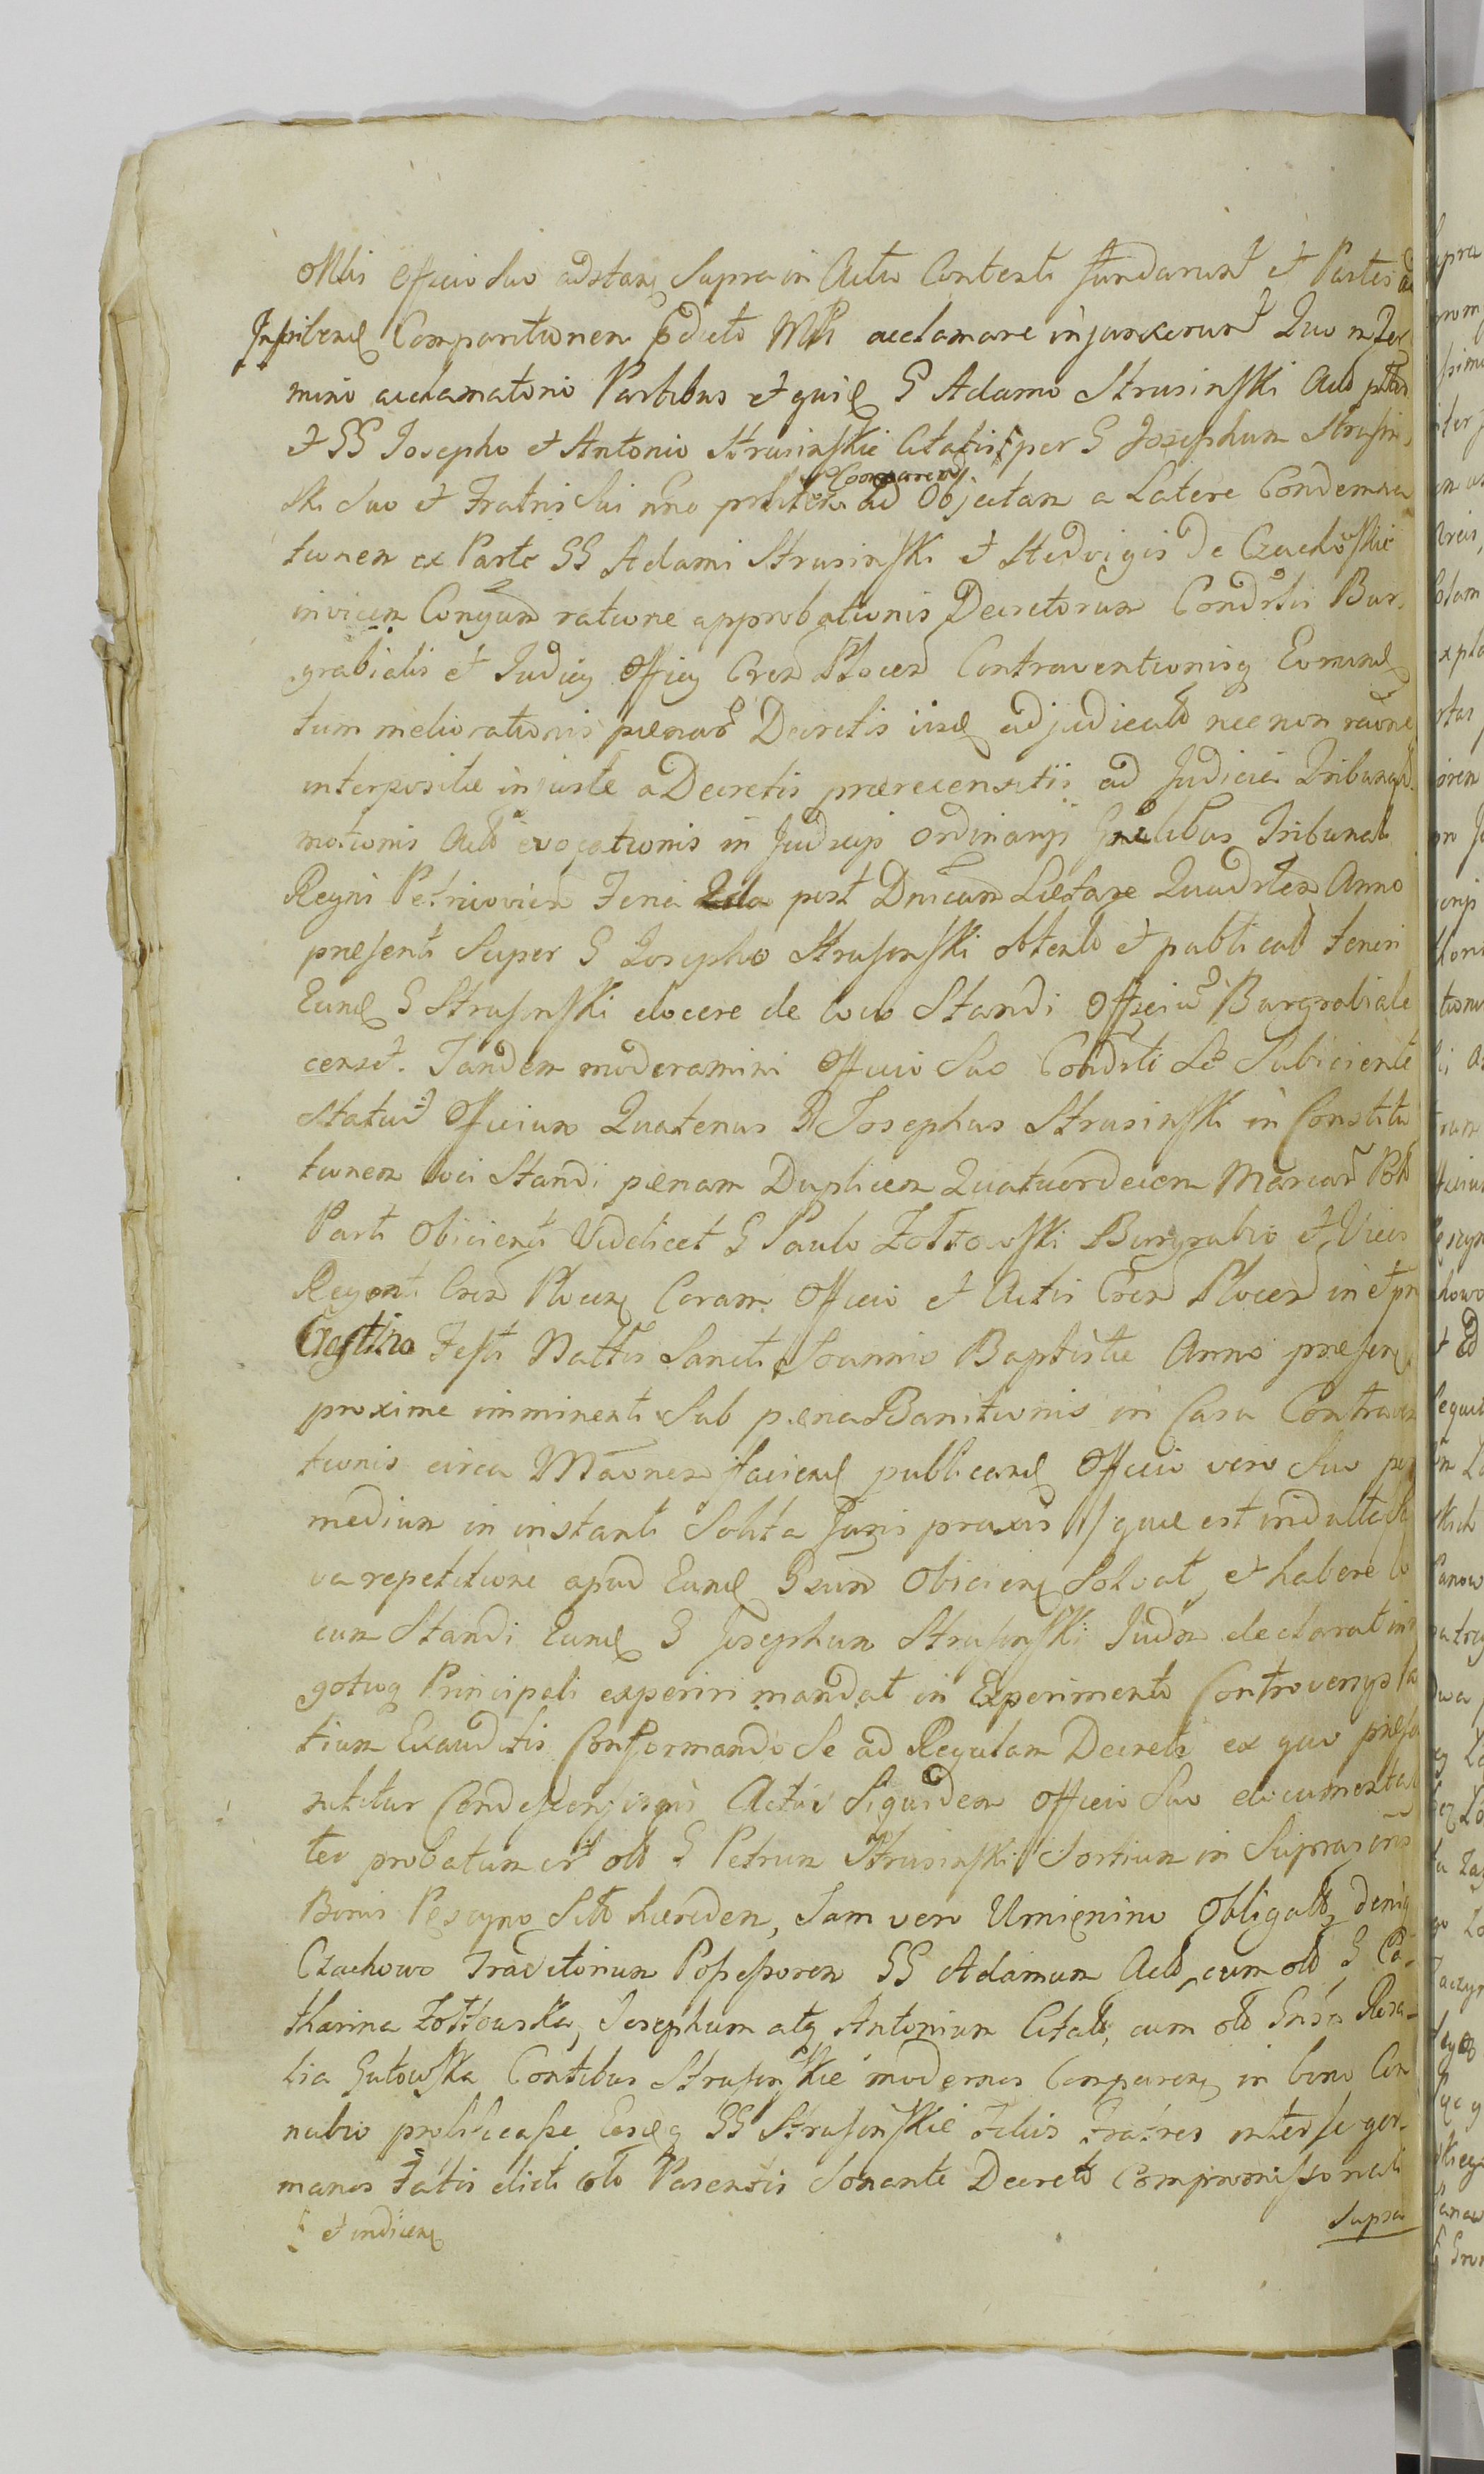 Mtis Officio Suo adstan Supra in Actu Contenti fundarunt et Partes ad
Inscibend Comparitionem Edicto Mtli acclamare injunxerunt Quo in Ter
mino acclamatorio Partibus et quid G Adamo Strusinski Acto
et GG Josepho et Antonio Strusinskie Citatis per G Josephum Strusin
ski Suo et Fratris Sui nno Comparend. ad Objectam a Latere Condemna
tionem ex Parte GG Adami Strusinski et Hedvigis de Czachoskie
invicem Conjgum ratione approbationis Decretorum Condrlis Bur,
grabialis et Judicy Officy Cren Plocen Contraventionisq Eorund
tum meliorationis pænar Decretis iisd adjudicato nec non raõne
interpositæ injuste a Decretis prærecensitis ad Judicia Tribunal
motionis Acto evocationis in Judicijs Ordinarijs Gnalibus Tribunal
Regni Petricovien Feria 2da post Dnicam Lætare Quadrlem Anno
præsenti Super G Josepho Strusinski obtent et publicat teneri
Eund G Strusinski docere de loco Standi Officiu Burgrabiale
censet. Tandem moderamini Officio Suo Condrli Se Subiciente
Statuit Officium Quatenus G Josephus Strusinski in Constitu
tionem loci Standi pænam Duplicem Quatuordecim Marcar Pol
Parti Obicienti Videlicet G Paulo Zołtowski Burgrabio et Vices
Regenti Cren Plocen Coram Officio et Actis Cren Plocen in et pro
Crastino Festi Nattis Sancti Joannis Baptistæ Anno præsen
proxime imminenti Sub pæna Banitionis in Casu Contraven
tionis circa Mãonem faciend publicand Officio vero Suo per
medium in instanti Solita Juris praxis // quæ est indulta Sal
va repetitione apud Eund Gsum Obicien Solvat, et habere lo
cum Standi Eund G Josephum Strusinski Judm declarat in n
gotioq Principali experiri mandat in Experimento Controversys Par
tium Exauditis Conformando Se ad Regulam Decreti ex quo præsen
nititur Condescensionis Actus Siquidem Officio Suo documental
ter probatum est olo G Petrum Strusinski Sortium in Supras
Bonis Pęszyno Sitt hæredem, Jam vero Umienino Obligatt, deniq
Czachowo Traditorium Possessorem GG Adamum Acto, cum olo G Ca-
tharina Zołtowska, Josephum atq Antonium Citatt, cum olo Gnsa Rosa-
lia Gutowska Contibus Strusinskie modernos Comparen in bono Con
nubio prolificasse Eosdq GG Strusinskie Filios Fratres inter se ger-
manos Fatis dicti olo Parentis Sonante Decreto Compromissoriali
et indicen
Supra